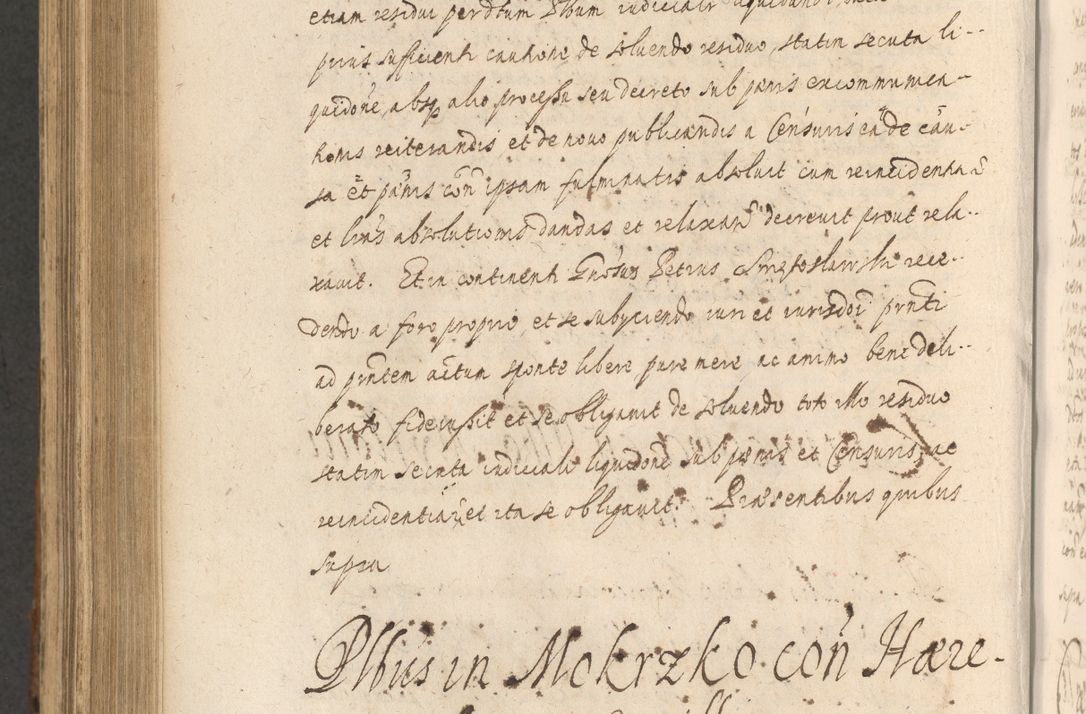 etiam residui per dtum Plbum iudicialr liquidandi
prius sufficienti cautione de soluendo residuo, statim secuta li-
quidoñe, absq alio processu seu decreto sub pœnis excommunica-
tionis reiterandis et de nouo publicandis a Censuris ea de cau-
sa et pœnis coñ ipsam fulminatis absoluit cum reincidentia
et lras absolutionis dandas et relaxan decreuit prout rela-
xauit. Et in continenti Gnosus Petrus Swiętosławski rece-
dendo a foro proprio, et se subyciendo iuri et iurisdoi pñti
ad pñtem actum sponte libere pure mere ac animo bene deli-
berato fideiussit et se obligauit de soluendo toto illo residuo
statim secuta iudiciali liquidoñe sub pœnis et Censuris, ac
reincidentia, et ita se obligauit. Præsentibus quibus
supra
Plbus in Mokrzko coñ Hære-